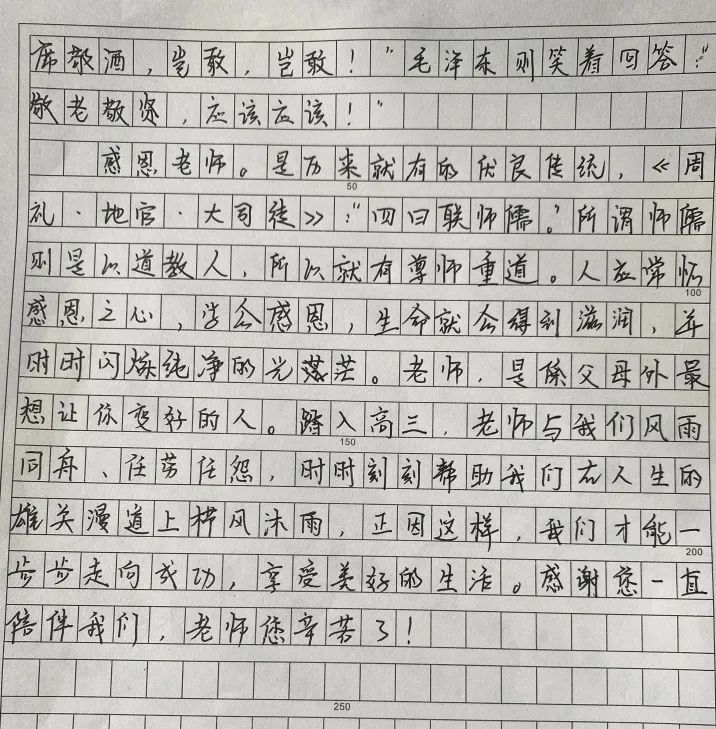 席敬酒，岂敢，岂敢！"毛泽东则笑着回答："
敬老敬贤，应该应该！"
感恩老师。是历来就有的优良传统，《周
50
礼·地官·大司徒》："四曰联师儒。"所谓师儒
则是以道教人，所以就有尊师重道。人应常怀
100
感恩之心，学会感恩，生命就会得到滋润，并
时时闪烁纯净的光芒。老师，是除父母外最
想让你变好的人。踏入高三，老师与我们风雨
150
同舟、任劳任怨，时时刻刻帮助我们在人生的
雄关漫道上栉风沐雨，正因这样，我们才能一
200
步步走向成功，享受美好的生活。感谢您一直
陪伴我们，老师您辛苦了！
250